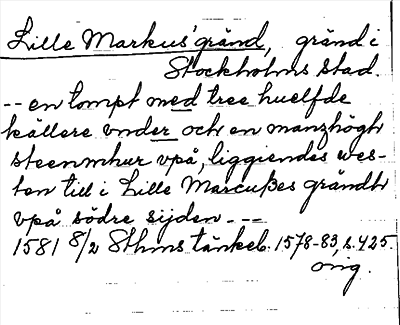 Lille Markus' gränd, gränd i
Stockholms stad.
-- en tompt med tree huelfde
källere vnder och en manzhögh
steenmhur vpå, liggiendes wes-
ten till i Lille Marcußes grändh
vpå södre sijden ---
1581 8/2 Sthms tänkeb. 1578-83, s. 425.
orig.